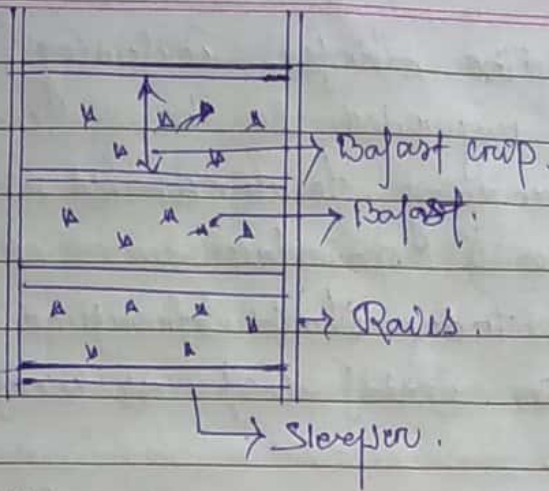 Balast crip.
Balast.
Rails.
Sleeper.